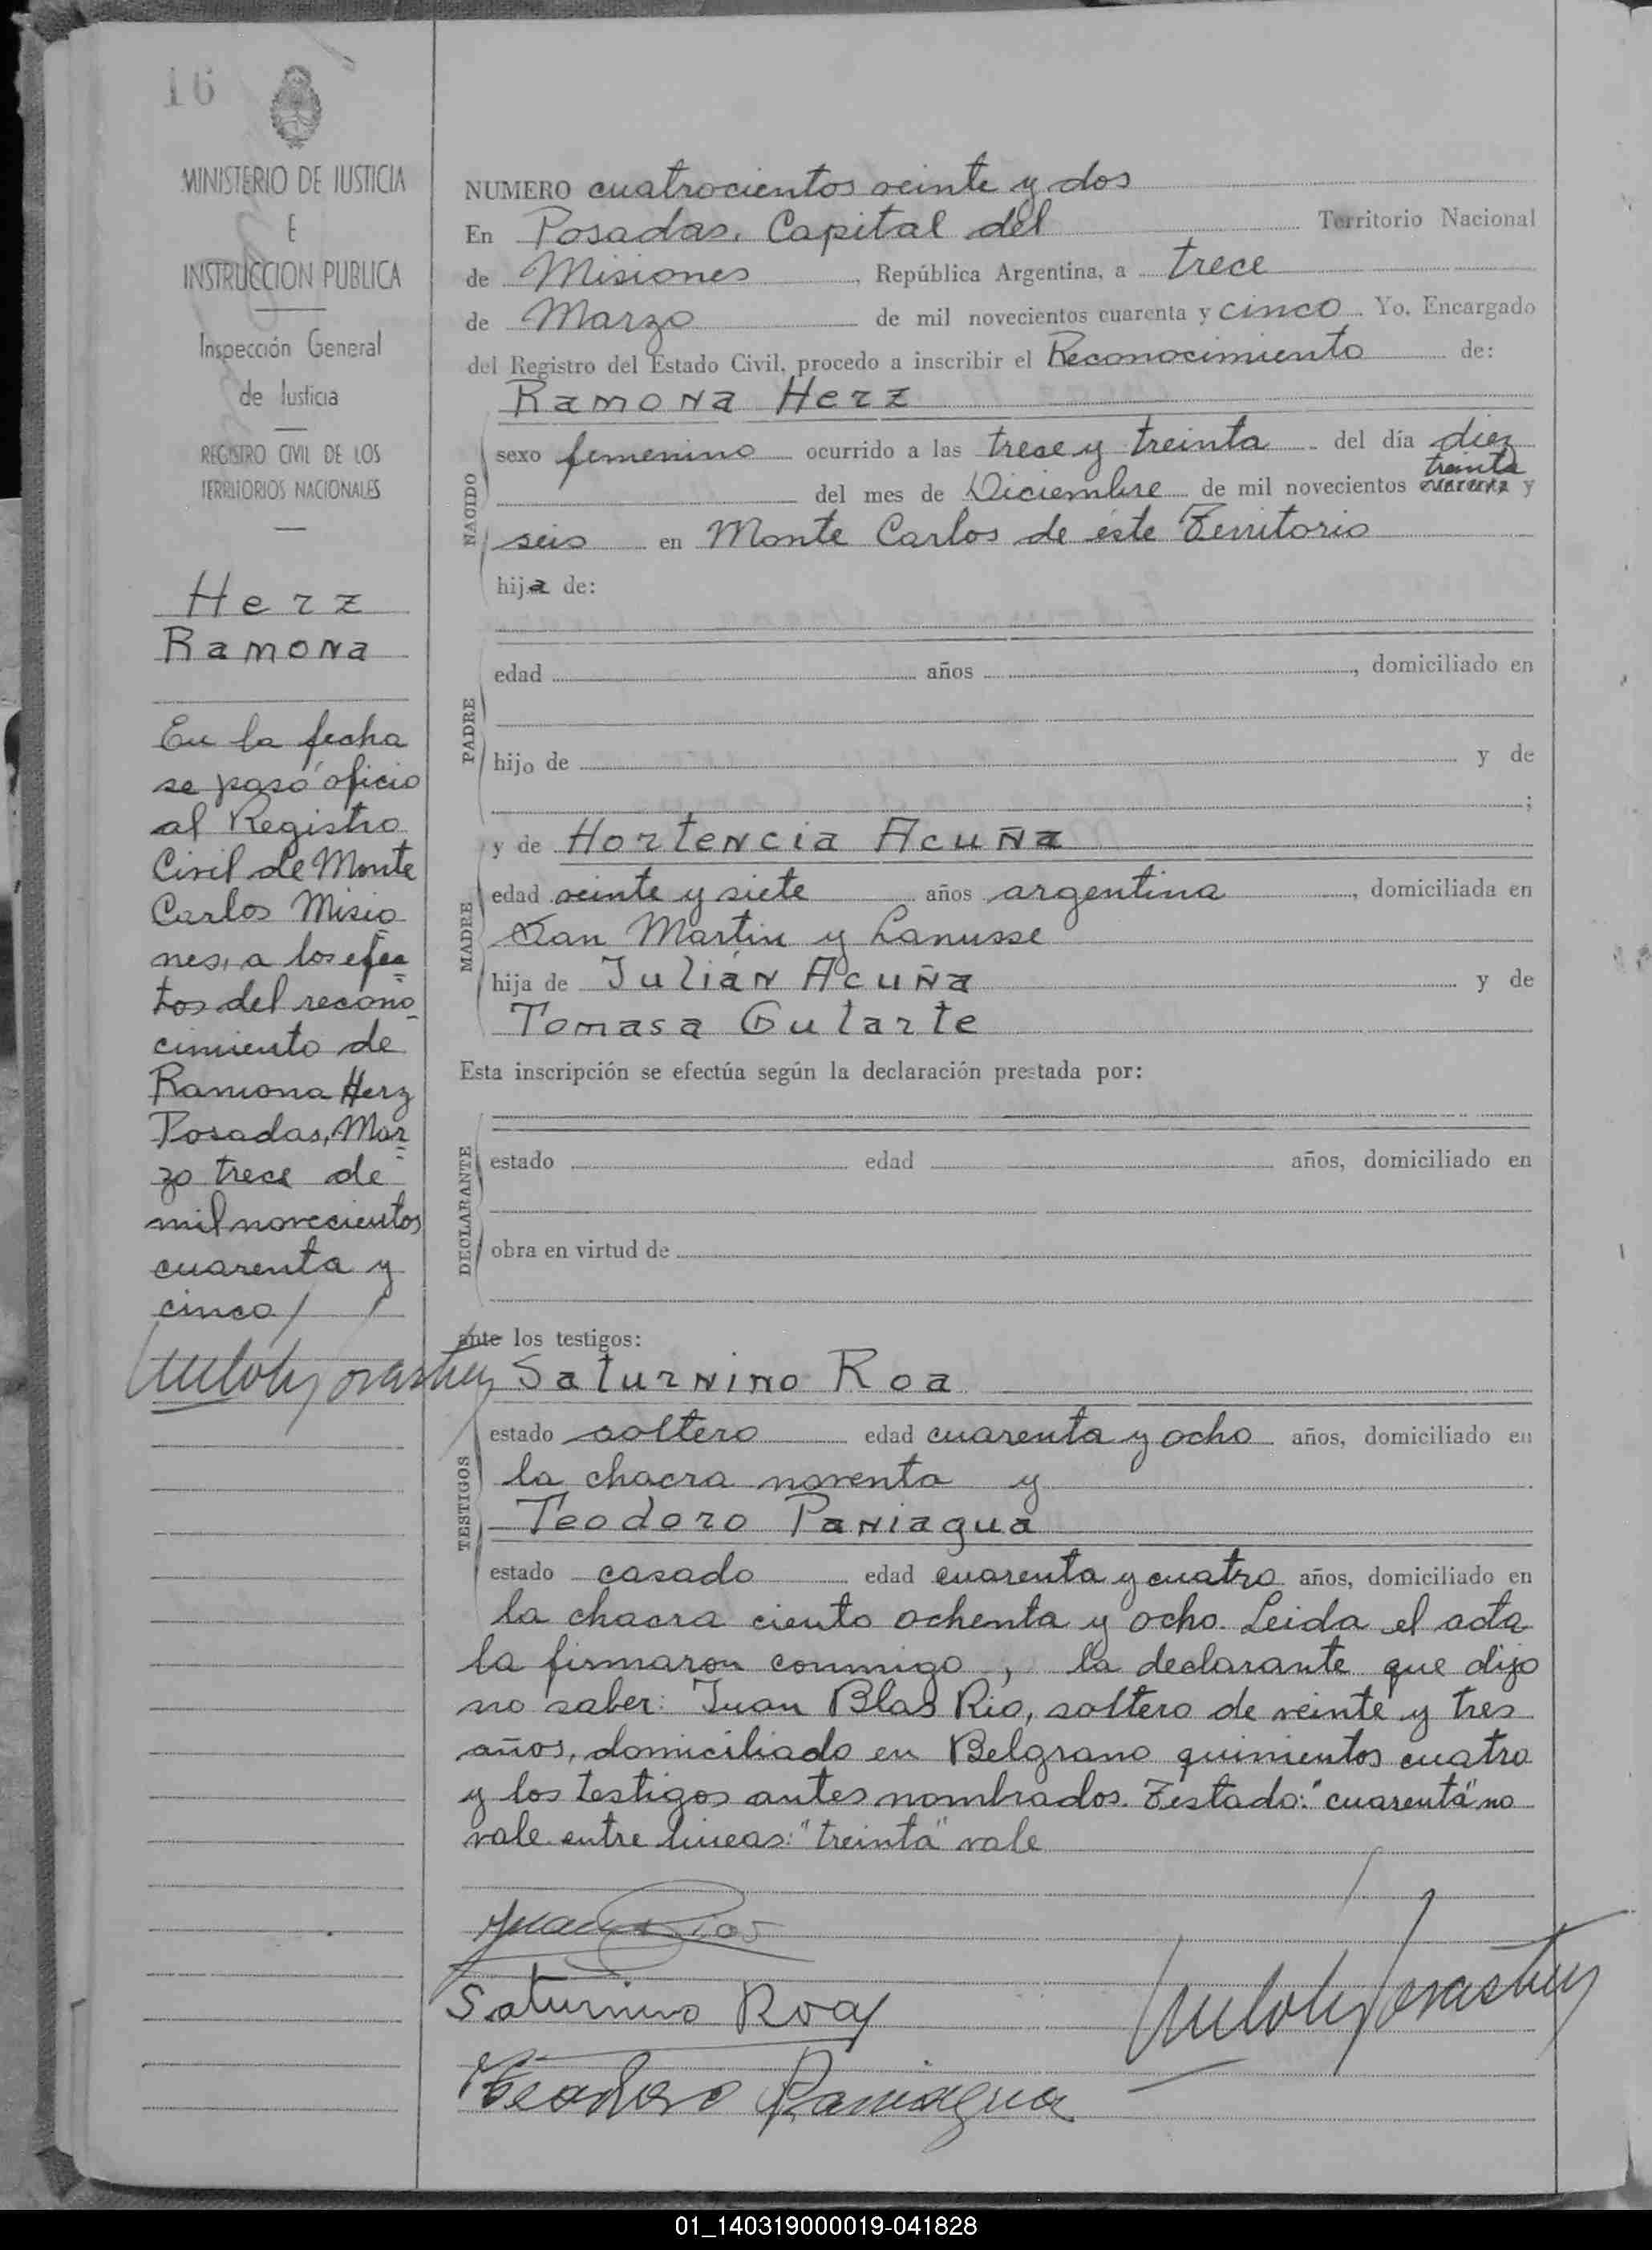 16
MINISTERIO DE JUSTICIA
E
INSTRUCCION PUBLICA
Inspección General
de Justicia
REGISTRO CIVIL DE LOS
TERRITORIOS NACIONALES
Herz
Ramona
En la fecha
se pasó oficio
al Registro
Civil de Monte
Carlos Misio
nes, a los efec
tos del recono
cimiento de
Ramona Herz
Posadas, Mar
zo trece de
mil novecientos
cuarenta y
cinco
NUMERO cuatrocientos veinte y dos
En Posadas, Capital del Territorio Nacional
de Misiones, República Argentina, a trece
de Marzo de mil novecientos cuarenta y cinco. Yo, Encargado
del Registro del Estado Civil, procedo a inscribir el Reconocimiento de:
Ramona Herz
NACIDO
sexo femenino ocurrido a las trece y treinta del día diez
treinta
del mes de Diciembre de mil novecientos cuarenta y
seis en Monte Carlos de éste Territorio
hija de:
PADRE
edad años , domiciliado en
hijo de y de
;
y de Hortencia Acuña
MADRE
edad veinte y siete años argentina, domiciliada en
San Martin y Lanusse
hija de Julián Acuña y de
Tomasa Gularte
Esta inscripción se efectúa según la declaración prestada por:
DECLARANTE
estado edad años, domiciliado en
obra en virtud de
ante los testigos:
Saturnino Roa
TESTIGOS
estado soltero edad cuarenta y ocho años, domiciliado en
la chacra noventa y
Teodoro Paniagua
estado casado edad cuarenta y cuatro años, domiciliado en
la chacra ciento ochenta y ocho. Leida el acta
la firmaron conmigo, la declarante que dijo
no saber: Juan Blas Rio, soltero de veinte y tres
años, domiciliado en Belgrano quinientos cuatro
y los testigos antes nombrados. Testado: "cuarenta" no
vale entre lineas: "treinta" vale
Juan Rios
Saturnino Roa
Teodoro Paniagua
01_140319000019-041828